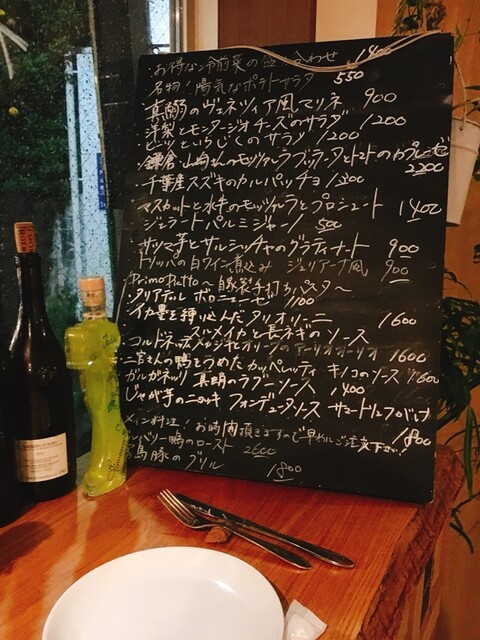 ・お得な冷前菜の盛合わせ 1400
名物!陽気なポテトサラダ 550
真鯛のヴェネツィア風マリネ 900
洋梨とモンタージオチーズのサラダ 1200
ビーツといちじくのサラダ 1200
・鎌倉山崎さんのモッツァレラブッラータとトマトのカプレーゼ 2200
・千葉産スズキのカルパッチョ 1300
マスカットと水牛のモッツァレラとプロシュート 1400
ジェラートパルミジャーノ 500
・サツマ芋とサルシッチャのグラティナート 900
トリッパの白ワイン煮込み ジェリアーナ風 900
Primo Piatto～自家製手打ちパスタ～
タリアテッレ ボロニェーゼ 1100
イカ墨を練り込んだタリオリーニ 1600
ズメイカと長ネギのソース
アーリオオーリオ 1600
鴨をつめたカッペレッティ キノコのソース 1600
ガルガネッリ 真鯛のラグーソース 1400
じゃが芋のニョッキ フォンデュータソース サマートリュフがけ 1800
メイン料理!お時間頂きますので早めにご注文下さい!
鴨のロースト 2600
島豚のグリル 1800